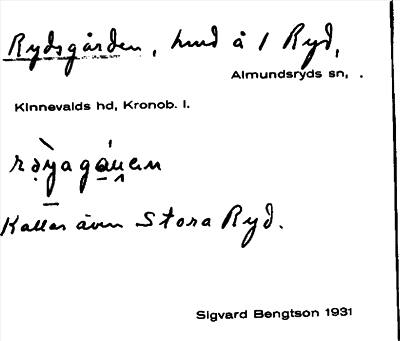 Rydsgården, hmd å 1 Ryd,
Almundsryds sn, .
Kinnevalds hd, Kronob. l.
Kallas även Stora Ryd.
Sigvard Bengtson 1931